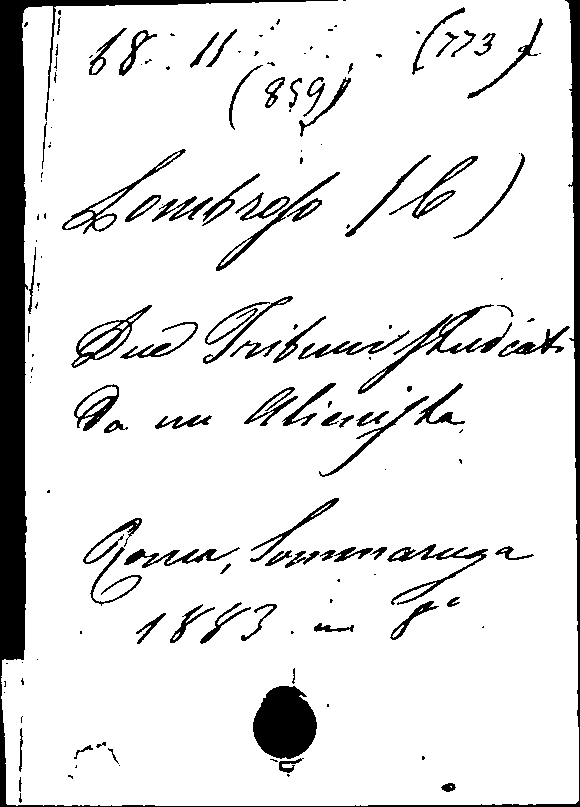 68. 11. (773)
(859)
Lombroso (C)
Due Tribuni studiati
da un Alienista
Roma, Sommaruga
1883 in 8°